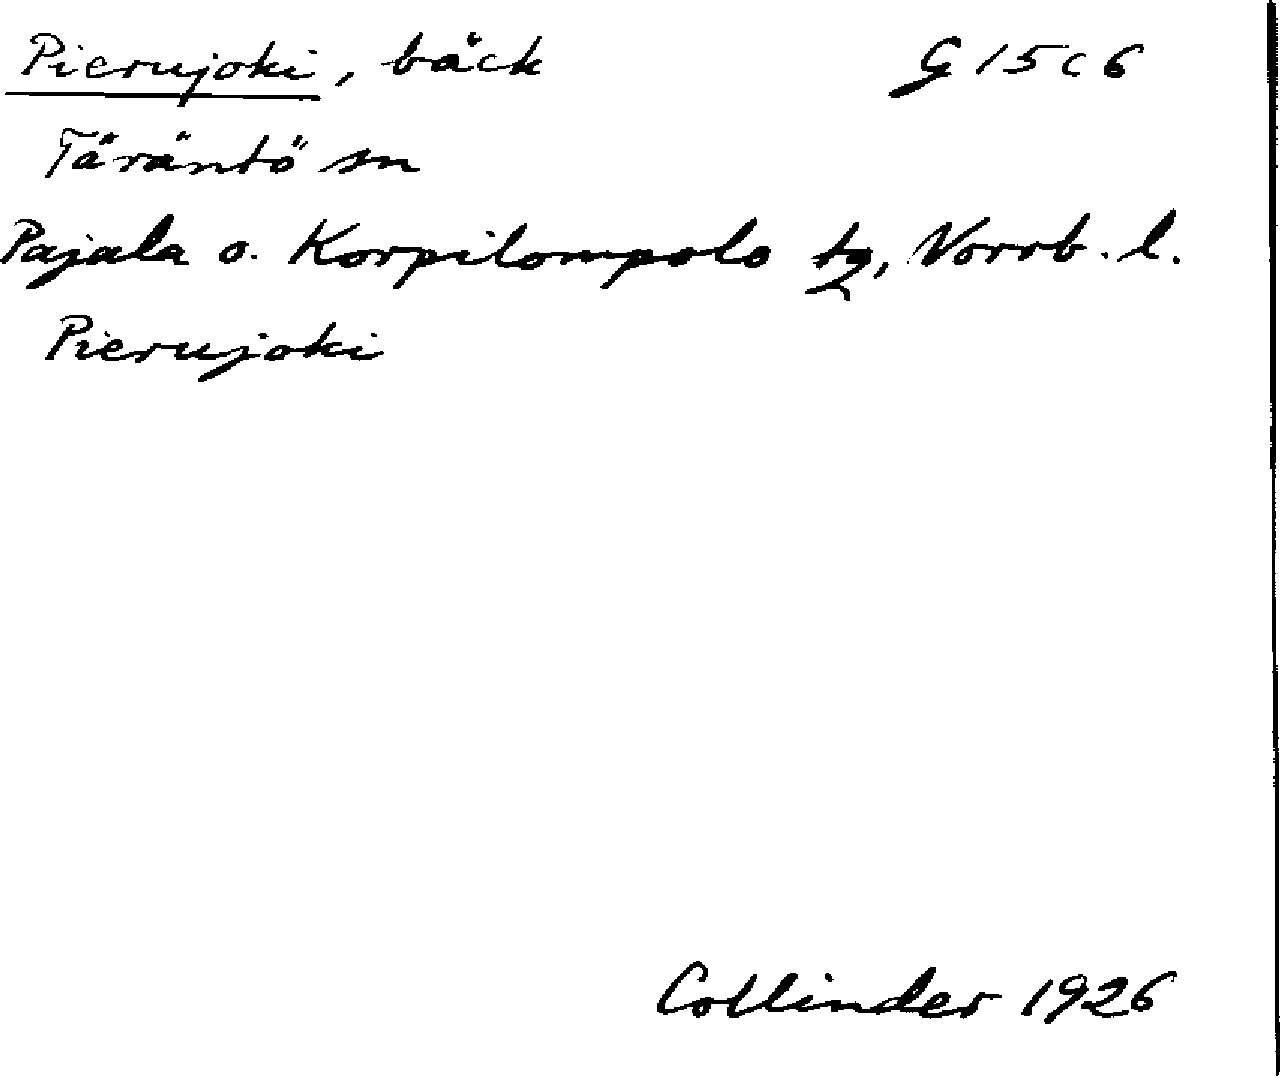 Pierujoki, bäck G 15 c 6
Täräntö sn
Pajala o. Korpilompolo tg, Norrb. l.
Pierujoki
Collinder 1926